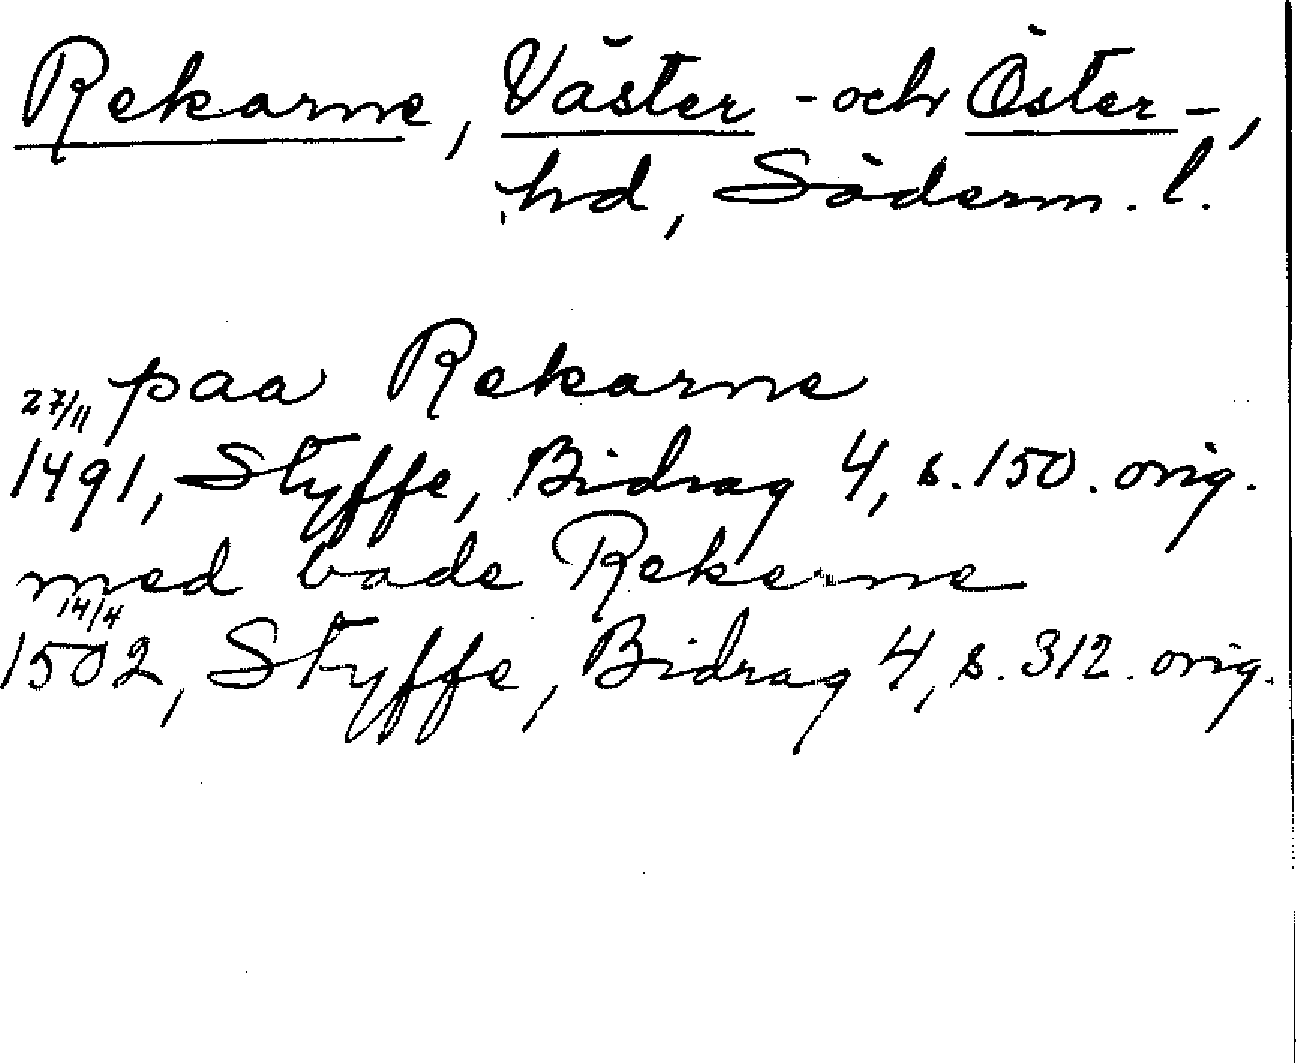 Rekarne, Väster - och Öster -,
hd, Söderm. l.
27/11 paa Rekarne
1491, Styffe, Bidrag 4, s. 150. orig.
med bade Rekerne
14/4
1502, Styffe, Bidrag 4, s. 312. orig.